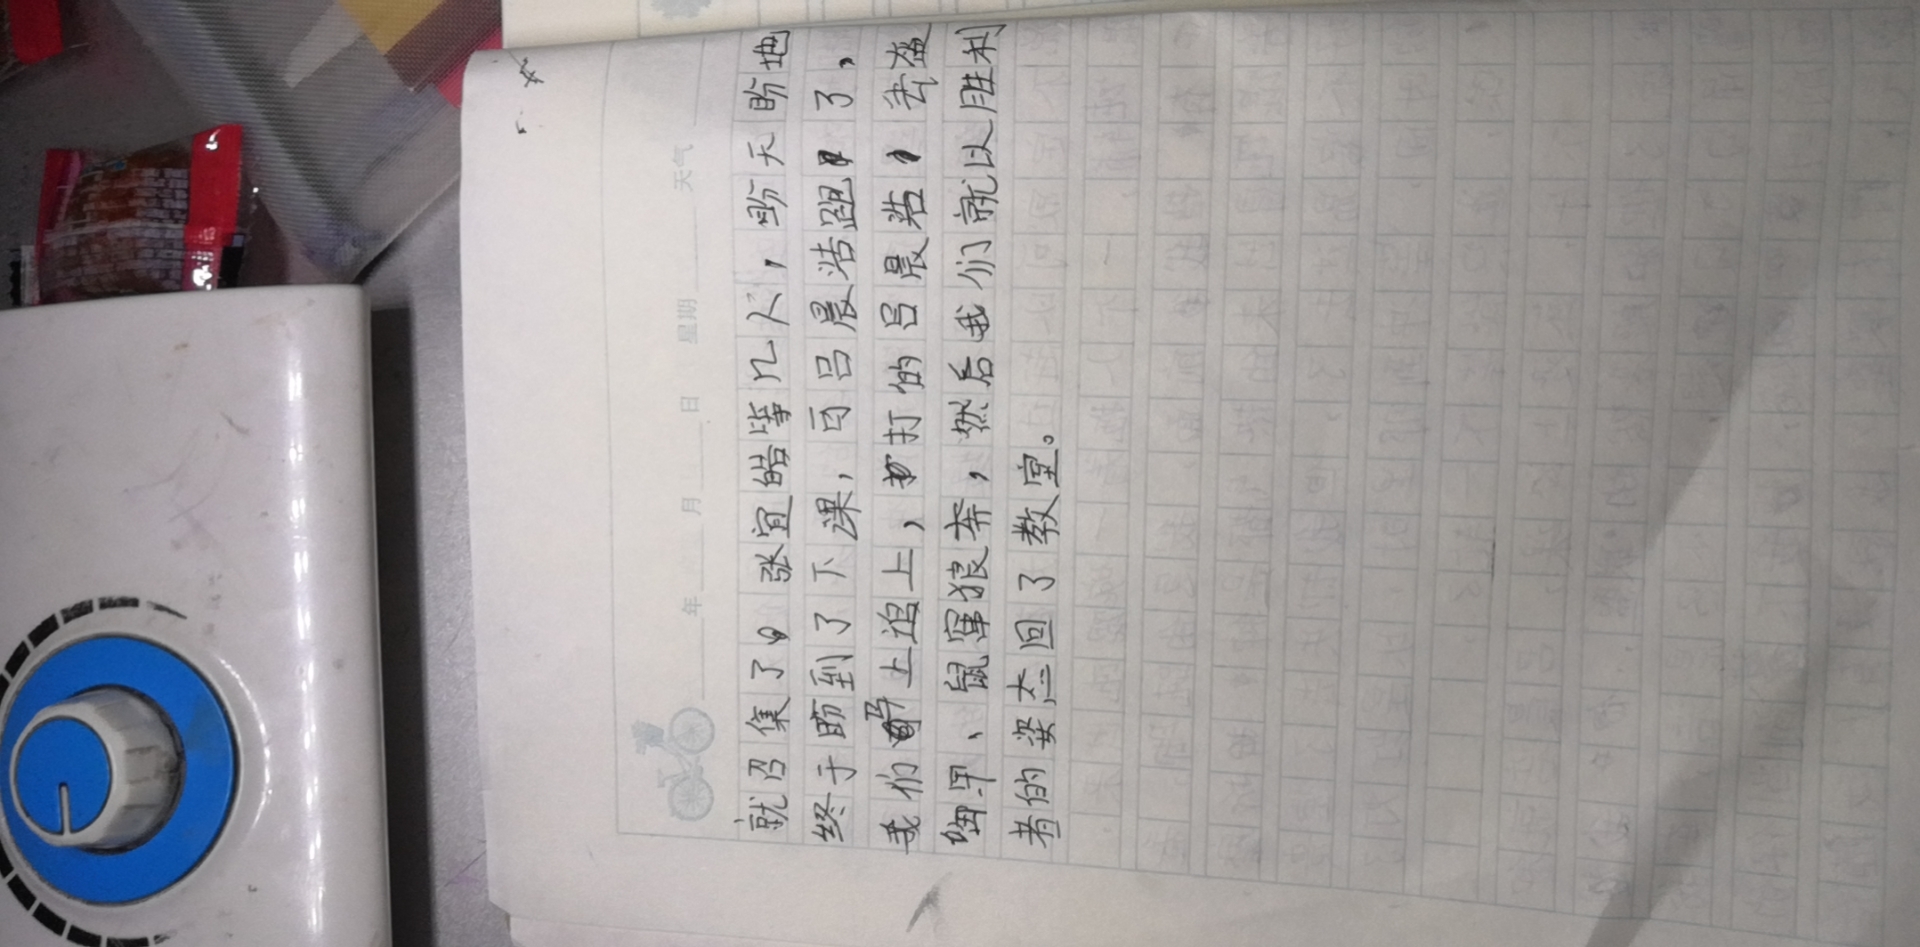 年 月 日 星期 天气
就召集了，张宜皓等几人，盼天盼地
终于盼到了下课，可吕晨浩跑了，
我们马上追上，打的吕晨浩，丢盔
卸甲、鼠窜狼奔，然后我们就以胜利
者的姿态回了教室。